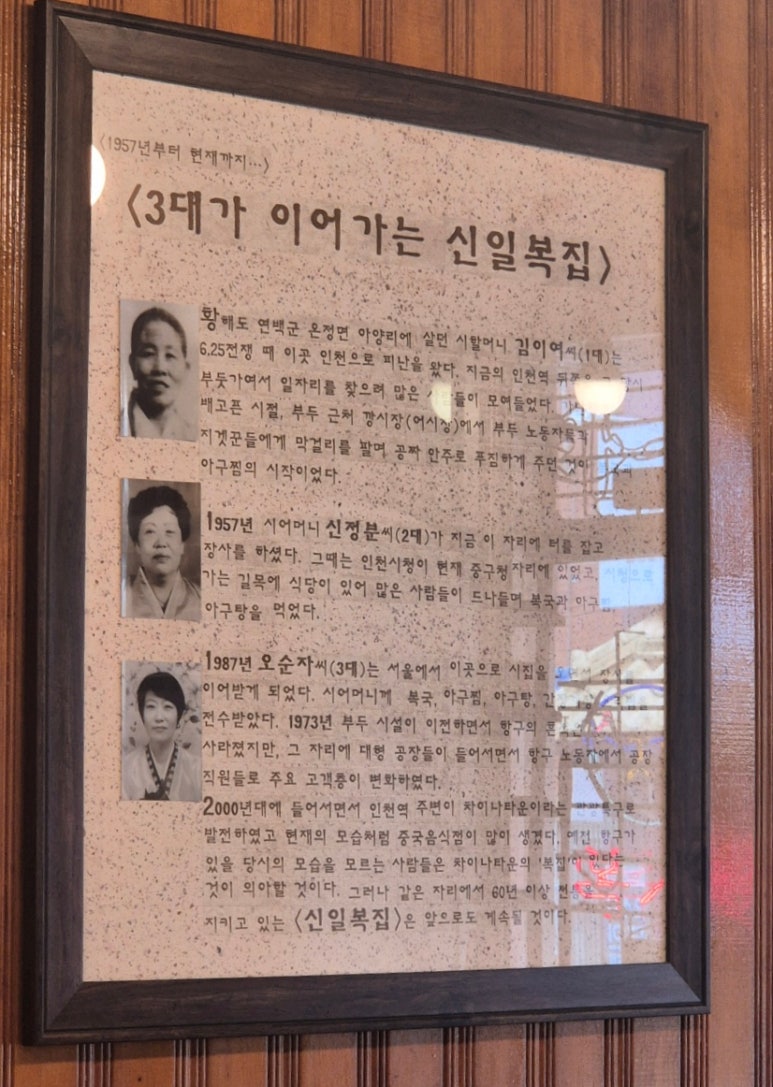 〈1957년부터 현재까지...〉
〈3대가 이어가는 신일복집〉
황해도 연백군 온정면 아양리에 살던 시할머니 김이여씨(1대)는
6.25전쟁 때 이곳 인천으로 피난을 왔다. 지금의 인천역 뒤쪽은
부둣가여서 일자리를 찾으려 많은 사람들이 모여들었다.
배고픈 시절, 부두 근처 깡시장(어시장)에서 부두 노동자들과
지겟꾼들에게 막걸리를 팔며 공짜 안주로 푸짐하게 주던 것이
아구찜의 시작이었다
1957년 시어머니 신정분씨(2대)가 지금 이 자리에 터를 잡고
장사를 하셨다. 그때는 인천시청이 현재 중구청 자리에 있었고,
가는 길목에 식당이 있어 많은 사람들이 드나들며 복국과 아구찜,
아구탕을 먹었다.
1987년 오순자씨(3대)는 서울에서 이곳으로 시집을
이어받게 되었다. 시어머니께 복국, 아구찜, 아구탕,
전수받았다. 1973년 부두 시설이 이전하면서 항구의
사라졌지만, 그 자리에 대형 공장들이 들어서면서 항구 노동자에서 공장
직원들로 주요 고객층이 변화하였다.
2000년대에 들어서면서 인천역 주변이 차이나타운이라는 관광특구로
발전하였고 현재의 모습처럼 중국음식점이 많이 생겼다. 예전 항구가
있을 당시의 모습을 모르는 사람들은 차이나타운의 '복집'이 있다는
것이 의아할 것이다. 그러나 같은 자리에서 60년 이상 전통을
지키고 있는 〈신일복집〉은 앞으로도 계속될 것이다.